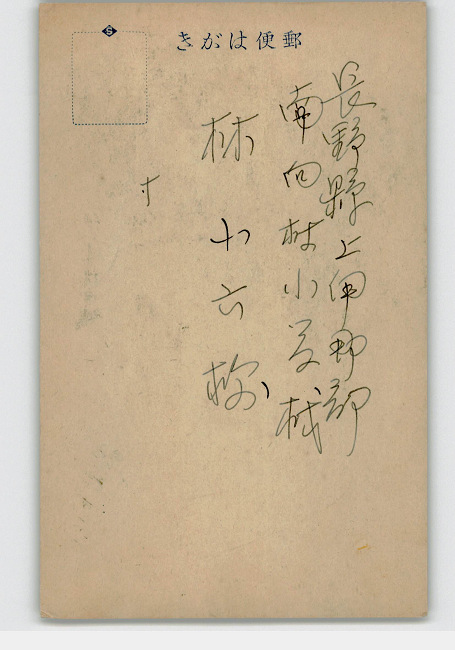 きがは便郵
長野縣上伊那郡
南向村小
林十六様